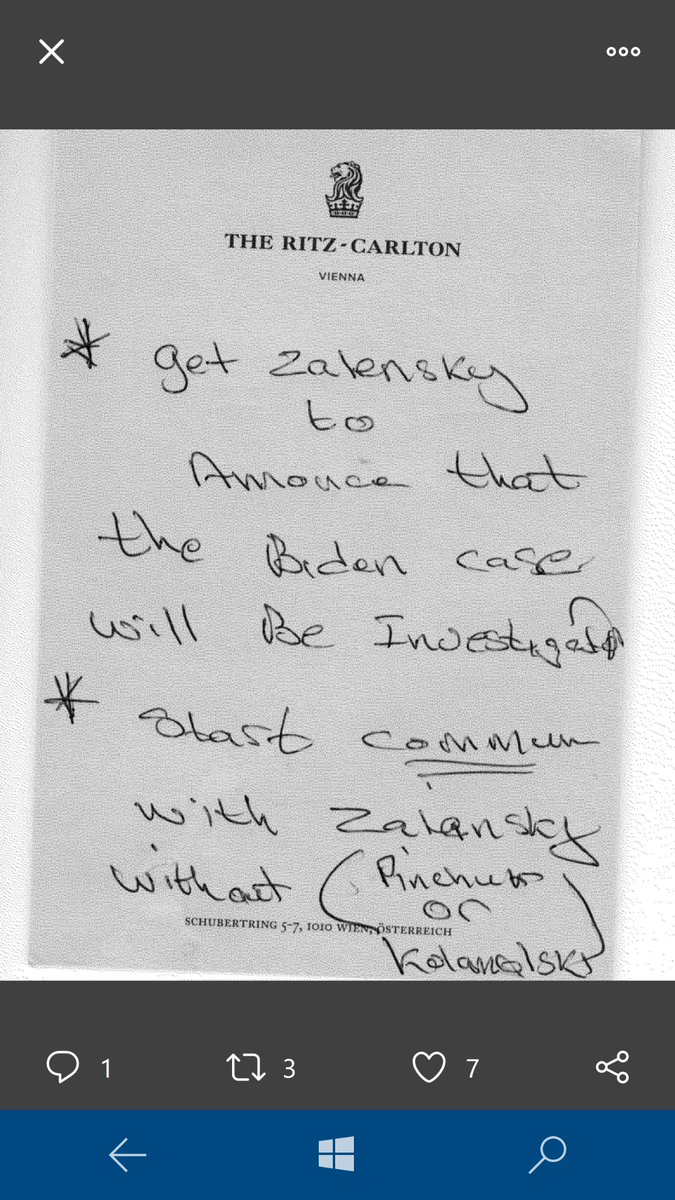 THE RITZ-CARLTON
VIENNA
* get Zalensky
to
Annouce that
the Biden case
will Be Investigated
* start commun
with Zalensky
without (Pinchuk
or
SCHUBERTRING 5-7, 1010 WIEN, ÖSTERREICH
1 3 7